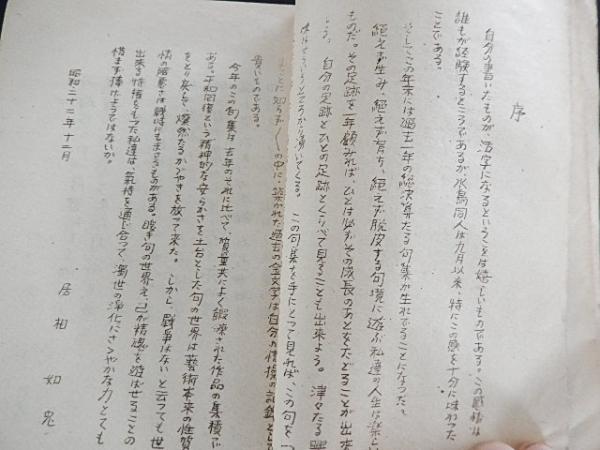 序
自分の書いたものが、活字になるということは嬉しいものである。この感情は
誰もが経験するところであるが、水鳥同人は九月以来、特にこの感を十分に味わった
ことである。
そしてこの年末には過去一年の総決算たる句集が生れでることになった。
絶えず生み、絶えず育ち、絶えず脱皮する句境に遊ぶ私達の人生は楽しい
ものだ。その足跡を一年顧みれば、ひとは必ずその成長のあとをたどることが出来
自分の足跡とひとの足跡とくらべて見ることも出来よう。津々たる興
ところから湧いてくる。この句集を手にとって見れば、この句を一つ
知らず〱の中に、築かれた過去の全文学は自分の情操の記録として
貴いものである。
今年のこの句集は去年のそれに比べて、質量共によく鍛練された作品の集積で
ある。平和回復という精神的な安らかさを土台とした句の世界は藝術本来の性質
をとり戻して、燦然たるかゞやきを放って来た。しかし、戦争はないと云っても世
情の險悪さは戦時にもまさるものがある。暖き句の世界え、己が精魂を遊ばせることの
出来る特権をもつ私達は、氣持を通じ合って、濁世の淨化にさゝやかな力とても
惜まず捧げようではないか。
昭和二十二年十二月
居相如兎